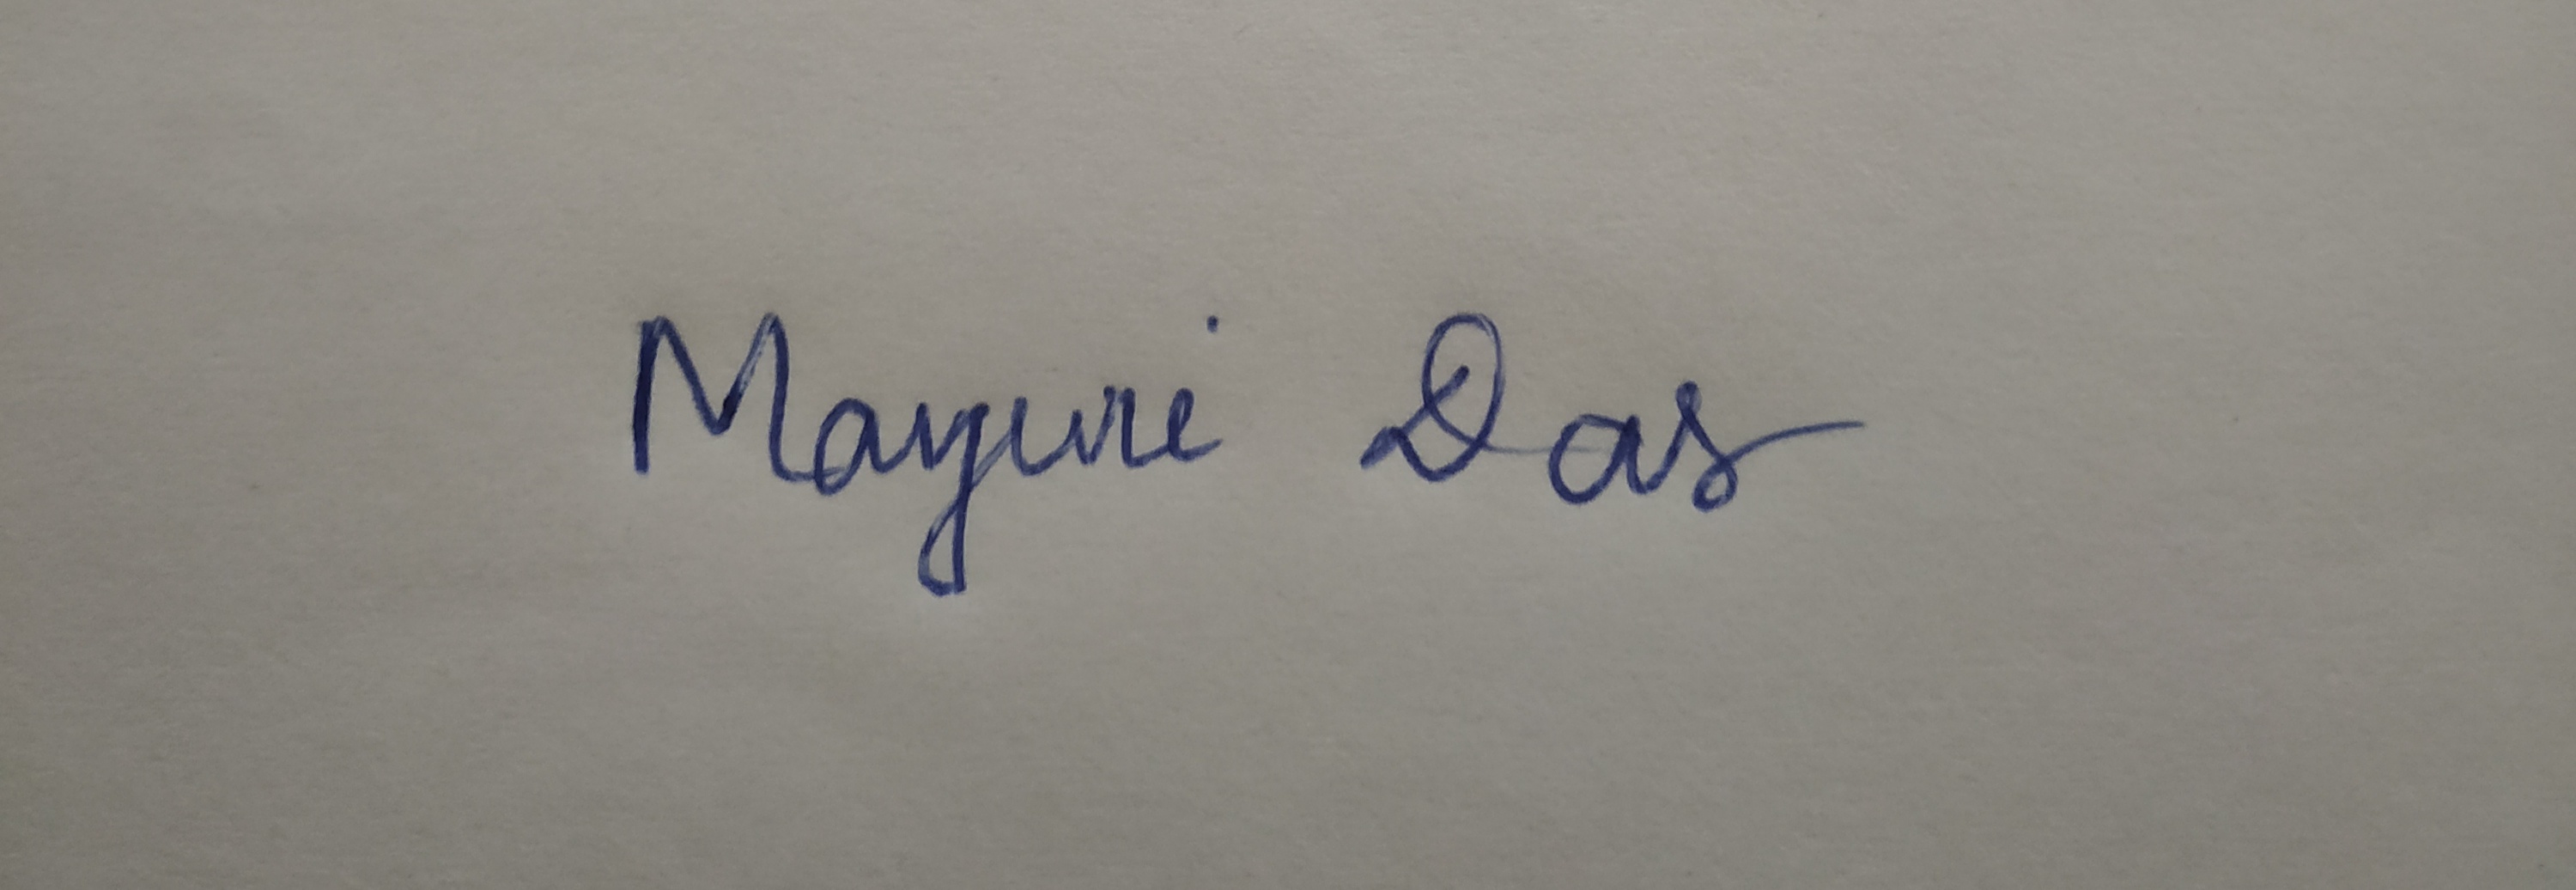 Mayuri Das